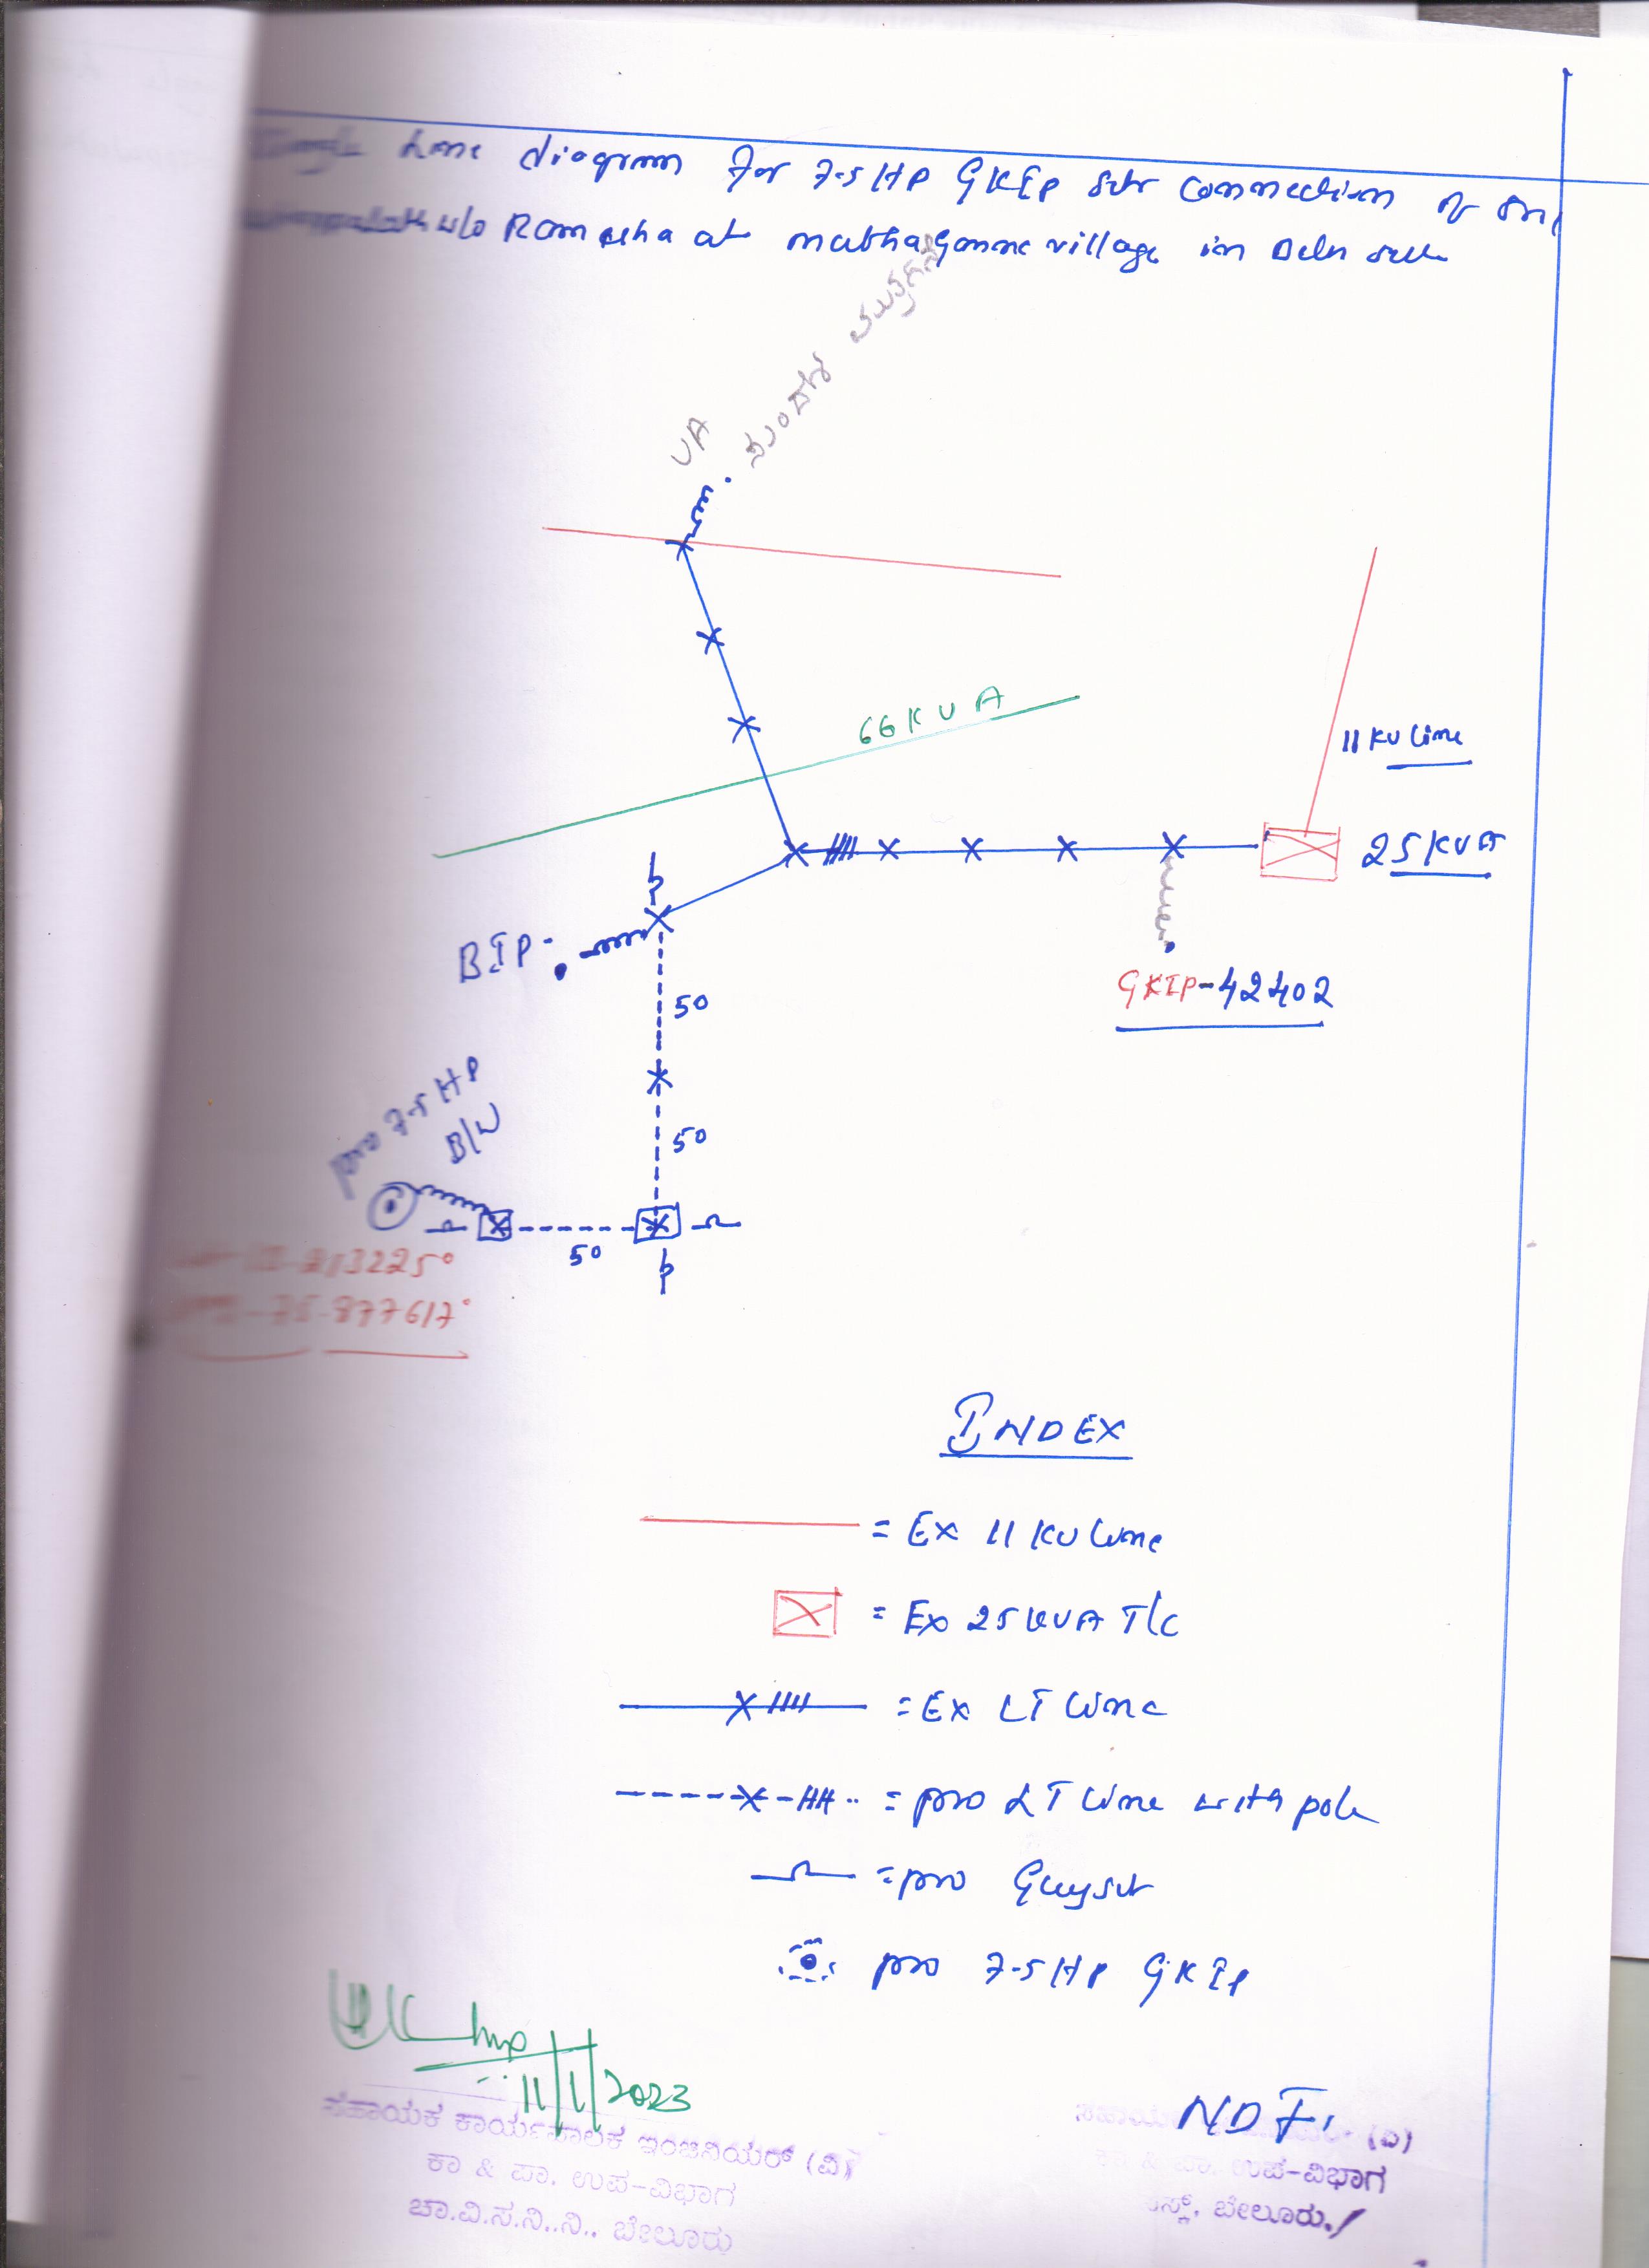 line diagram For 7.5 HP GKIP set connection of Smt
w/o Ramesha at village in Belur
UA
66 KVA
11 KV Line
25 KVA
BIP
GKIP-42402
50
50
pro 7.5 HP
B/W
50
3225°
877617°
INDEX
= Ex 11 KV Line
= Ex 25 KVA T/C
= Ex LT Line
= pro LT Line with pole
= pro Guyset
pro 7.5 HP GKIP
11/1/2023
NDF
ಸಹಾಯಕ ಕಾರ್ಯಪಾಲಕ ಇಂಜಿನಿಯರ್ (ವಿ)
ಕಾ & ಪಾ. ಉಪ-ವಿಭಾಗ
ಚಾ.ವಿ.ಸ.ನಿ..ನಿ.. ಬೇಲೂರು
(ವಿ)
ಉಪ-ವಿಭಾಗ
ಬೇಲೂರು.